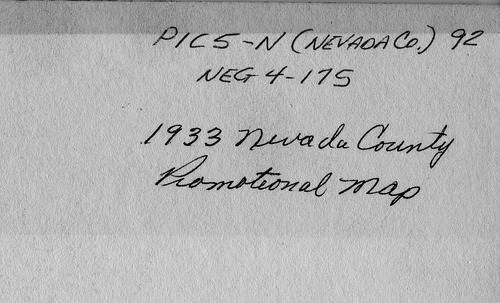 PICS-N (NEVADA CO.) 92
NEG 4-175
1933 Nevada County
Promotional Map